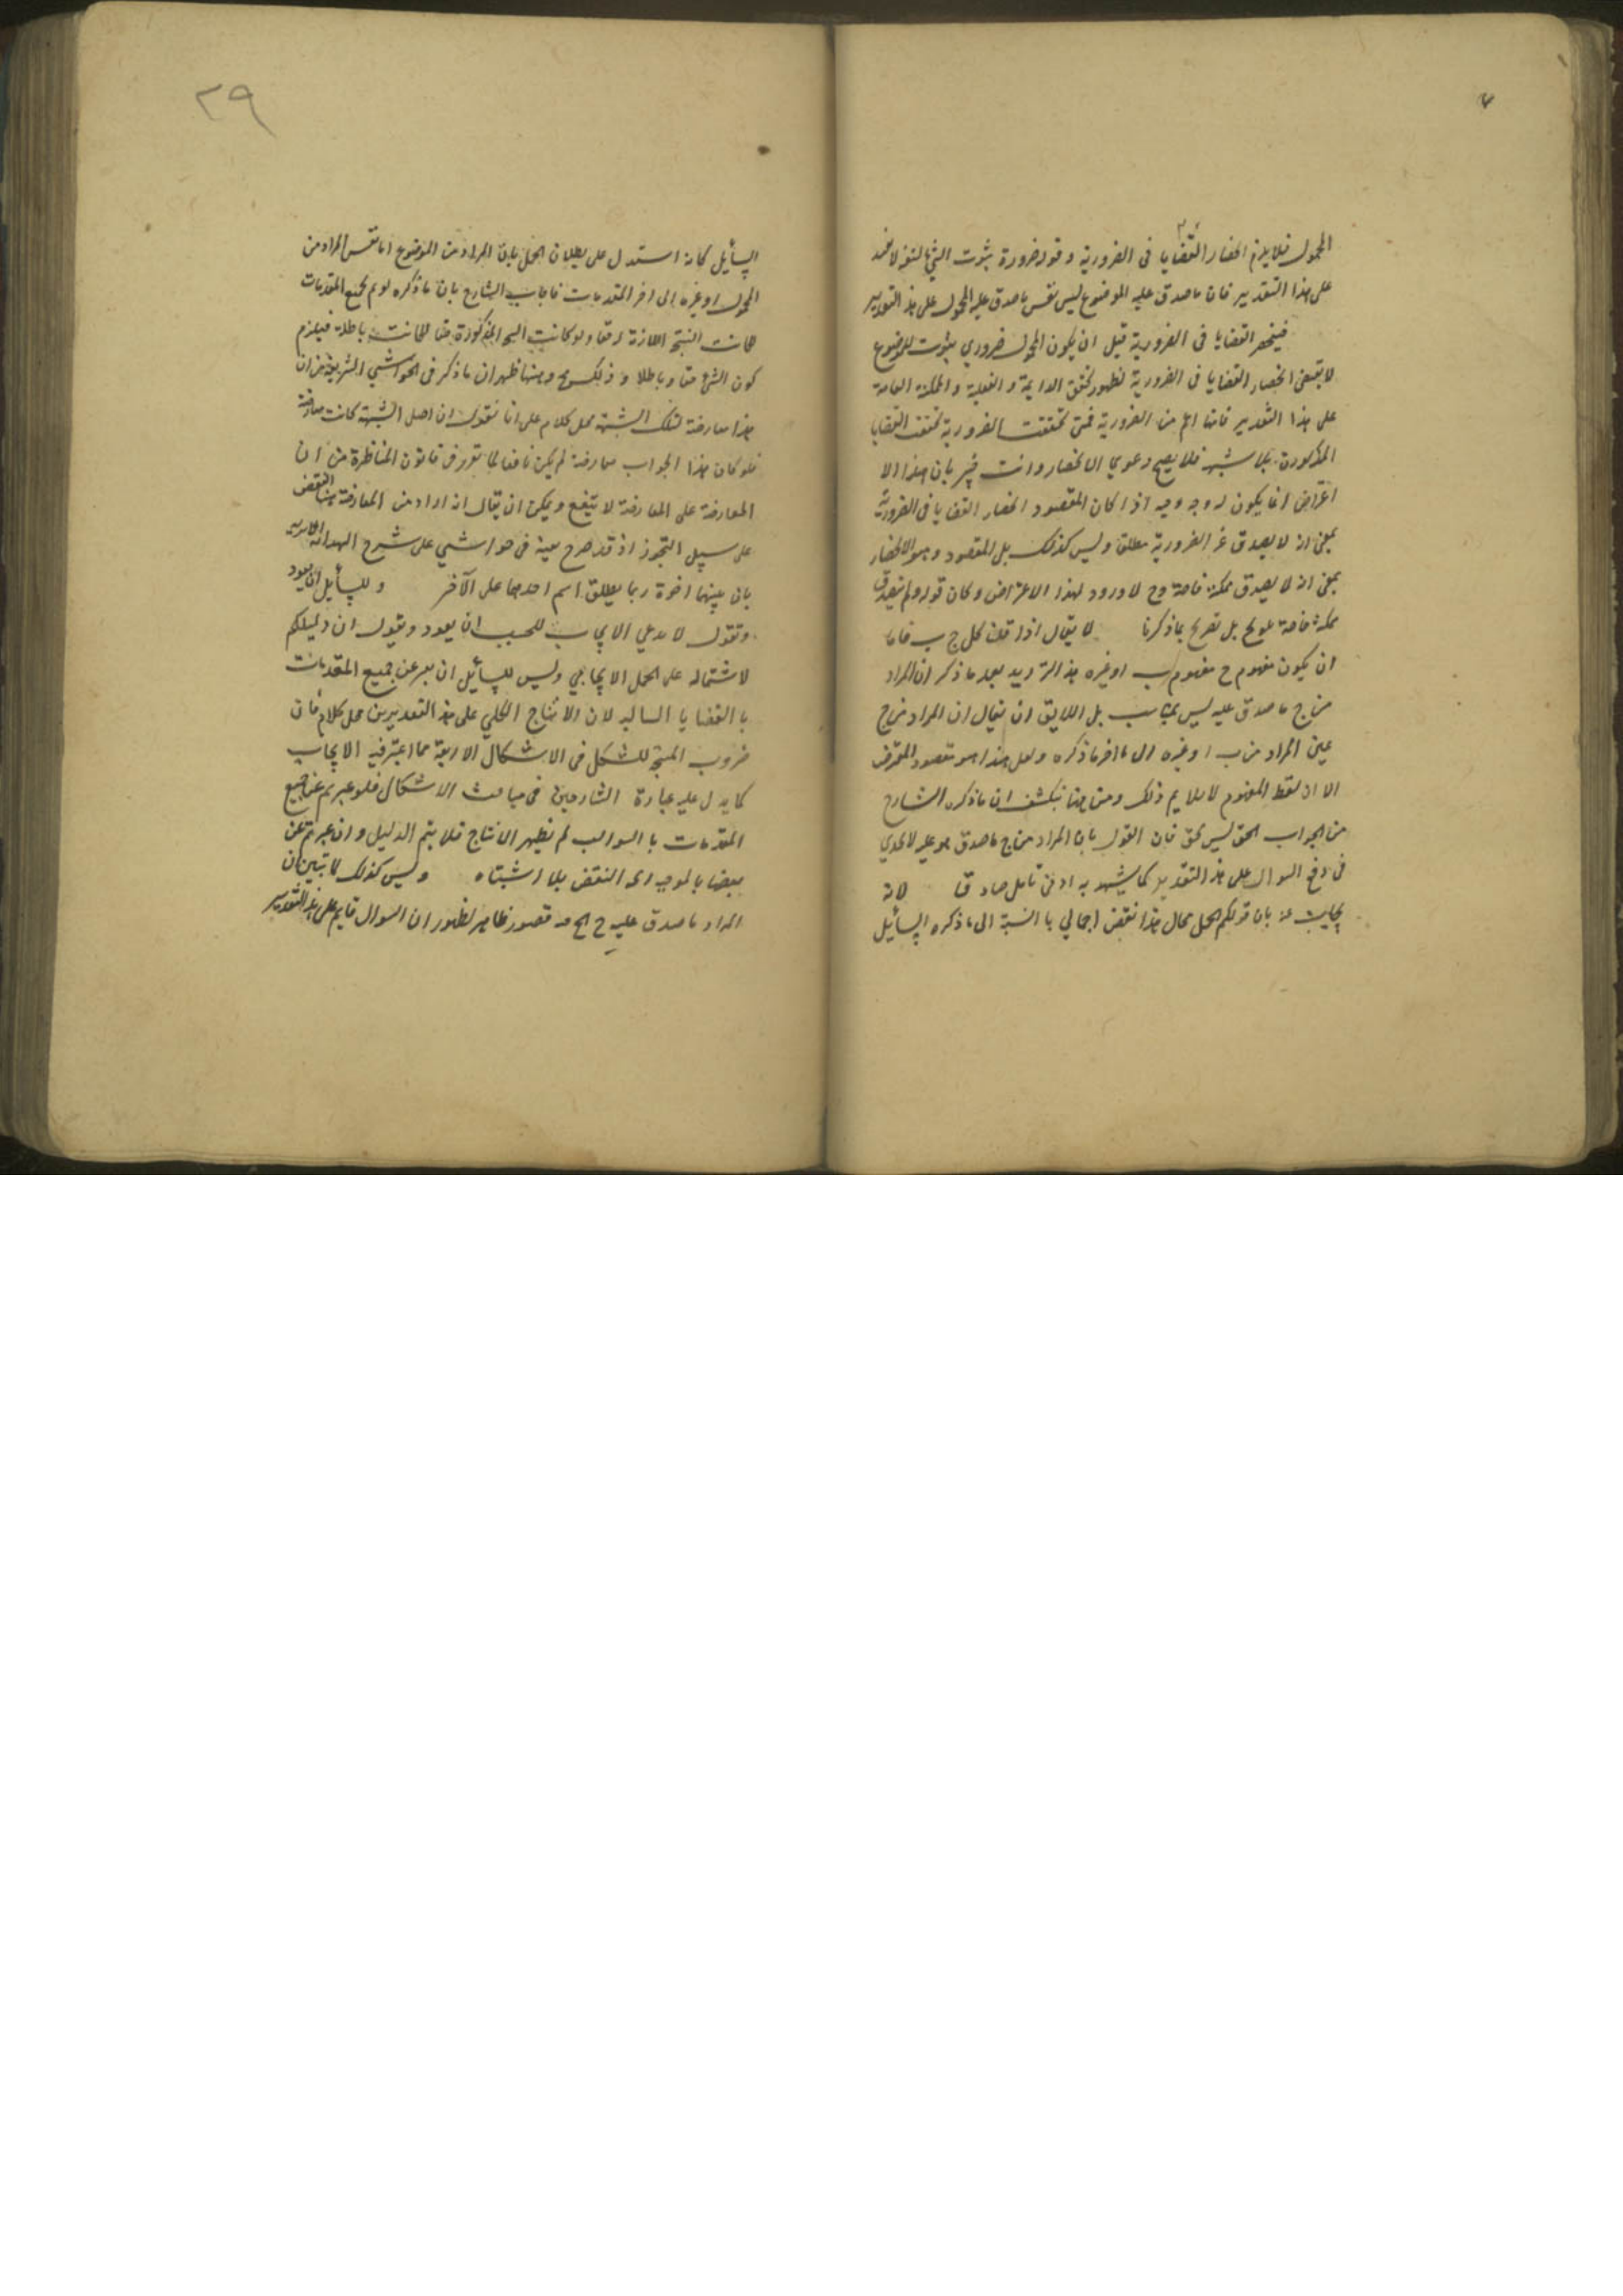 المحمول فلا يلزم انحصار القضايا فى الضرورية وقوله ضرورة ثبوت الشئ لنفسه لا يفيد
على هذا التقدير فان ما صدق عليه الموضوع ليس نفس ما صدق عليه المحمول على هذا التقدير
فينحصر القضايا فى الضرورية قيل ان يكون المحمول ضروري بثبوت للموضوع
لا يقتضى انحصار القضايا فى الضرورية لظهور تحقق الدايمة و الفعلية و الممكنة العامة
على هذا التقدير فانها اعم من الضرورية فمتى تحققت الضرورية تحققت القضايا
المذكورة بلا شبهه فلا يصح دعوى الانحصار وانت خبير بان هذا الا
اعتراض انما يكون له وجه وجيه اذا كان المقصود انحصار القضايا فى الضرورية
بمعنى انه لا يصدق غير الضرورية مطلقا وليس كذلك بل المقصود وهو الانحصار
بمعنى انه لا يصدق ممكنة خاصة وح لا ورود لهذا الاعتراض وكان قوله ولم تصدق
ممكنة خاصة تلويح بل تصريح بما ذكرنا لا يقال اذا قلنا كل ج ب فاما
ان يكون مفهوم ج مفهوم ب او غيره هذا الترديد بعد ما ذكر ان المراد
من ج ما صدق عليه ليس بمناسب بل اللايق ان يقال ان المراد من ج
عين المراد من ب او غيره الى اخر ما ذكره ولعل هذا هو مقصود المعترض
الا ان لفظ المفهوم لا يلايم ذلك ومن هنا ينكشف ان ما ذكره الشارح
من الجواب الحق ليس بحق فان القول بان المراد من ج ما صدق هو عليه لا يجدي
فى دفع السوال على هذا التقدير كما يشهد به ادنى تامل صادق لانه
يجاب عنه بان قولكم الحمل محال هذا نقض اجمالي با النسبة الى ما ذكره السائل
السائل كانه استدل على بطلان الحمل بان المراد من الموضوع اما نفس المراد من
المحمول او غيره الى اخر المقدمات فاجاب الشارح بان ما ذكره لو تم بجميع المقدمات
لكانت النتيجة اللازمة له حقا ولو كانت النتيجة المذكورة حقا لكانت باطلة فيلزم
كون الشئ حقا وباطلا و ذلك مح ومنها ظهر ان ما ذكر فى الحواشي الشريفة من ان
هذا معارضة لتلك الشبهة محل كلام على انا نقول ان اصل الشبهة كانت معارضة
فلو كان هذا الجواب معارضة لم يكن نافعا لما تقرر فى قانون المناظرة من ان
المعارضة على المعارضة لا تنفع ويمكن ان يقال انه اراد من المعارضة هنا النقض
على سبيل التجوز اذ قد صرح بعينه فى حواشي على شرح الهداية
بان بينهما اخوة ربما يطلق اسم احدهما على الآخر و للسائل ان يعود
وتقول لا ندعي الايجاب للمجيب ان يعود ويقول ان دليلكم
لاشتماله على الحمل الايجابي وليس للسائل ان يعبر عن جميع المقدمات
با القضايا السالبه لان الانتاج الكلي على هذا التقديرين محل كلام فان
ضروب المنتج للشكل فى الاشكال الاربعة مما اعتبر فيه الايجاب
كما يدل عليه عبارة الشارحين فى مباحث الاشكال فلو عبرتم عن جميع
المقدمات با السوالب لم يظهر الانتاج فلا يتم الدليل و ان عبرتم عن
بعضها بالموجبه اتجه النقض بلا اشتباه وليس كذلك لا تبين ان
المراد ما صدق عليه ج الخ فيه قصور ظاهر لظهور ان السوال قايم على هذا التقدير
٢٩